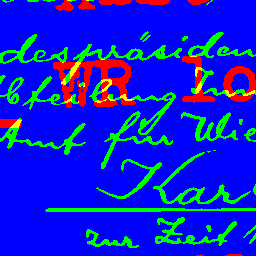 despräsiden
WR lo
bteilung
Amt für Wie
Kar
zur Zeit